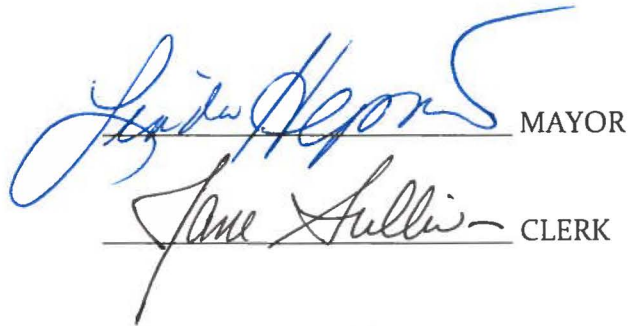 Linda Hepner MAYOR
Jane Sullivan CLERK